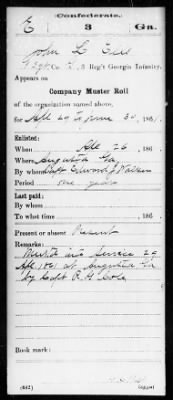 Confederate.
E 3 Ga.
John L
Co. 3 Reg't Georgia Infantry.
Appears on
Company Muster Roll
of the organization named above,
for Apl 29 to June 30, 1861.
Enlisted:
When Apl 26, 186
Where Augusta Ga,
By whom Capt
Period one year
Last paid:
By whom
To what time , 186 .
Present or absent Present
Remarks:
Mustd into Service 29
Apl 1861 at Augusta Ga
by Capt
Book mark:
(642) Copyist.